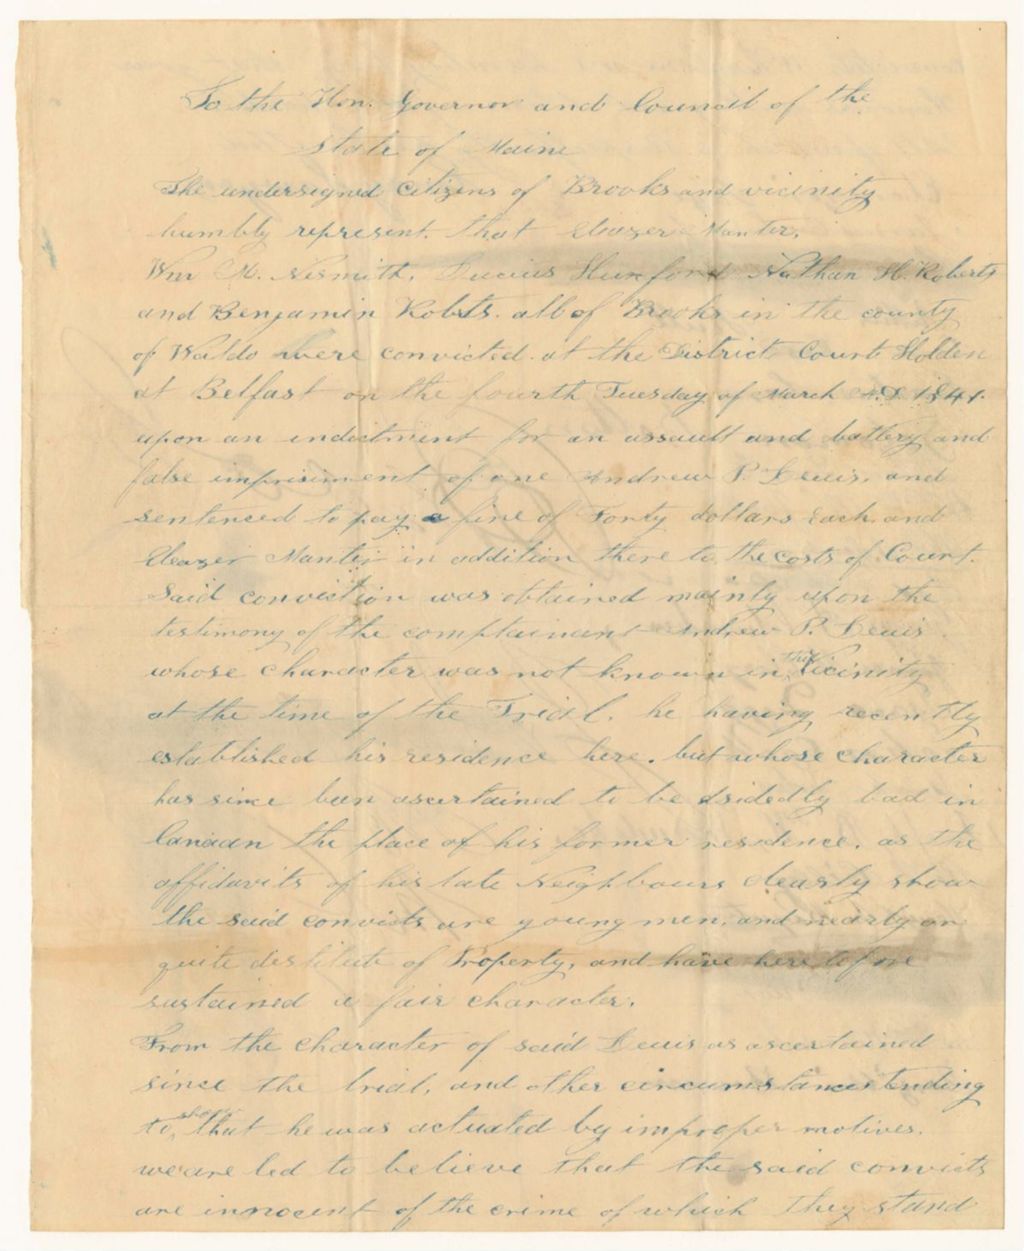 To the Hon. Governor and Council of the
State of Maine
The undersigned Citizens of Brooks and vicinity
humbly represent. that Eleazer Manter,
Wm M. Nesmith, Lucius Hunford Nathan H. Roberts
and Benjamin Robts. all of Brooks in the county
of Waldo were convicted. at the District Court Holden
at Belfast on the fourth Tuesday of March A.D 1841.
upon an indictment for an assault and battery and
false imprisiment of one Andrew P. Lewis, and
sentenced to pay a fine of Forty dollars each. and
Eleazer Manter in addition there to, the costs of Court.
Said conviction was obtained mainly upon the
testimony of the complainant Andrew P. Lewis
whose character was not known in this vicinity
at the time of the Trial. he having recently
established his residence here. but whose character
has since been ascertained to be dsidedly bad in
Canaan the place of his former residence, as the
affidavits of his late Neighbours clearly show
the said convicts are young men, and nearly or
quite destitute of Property, and have here tofore
sustained a fair character.
From the character of said Lewis as ascertained
since the trial, and other circumstances tending
to show that he was actuated by improper motives.
we are led to believe that the said convicts
are innocent of the crime of which they stand